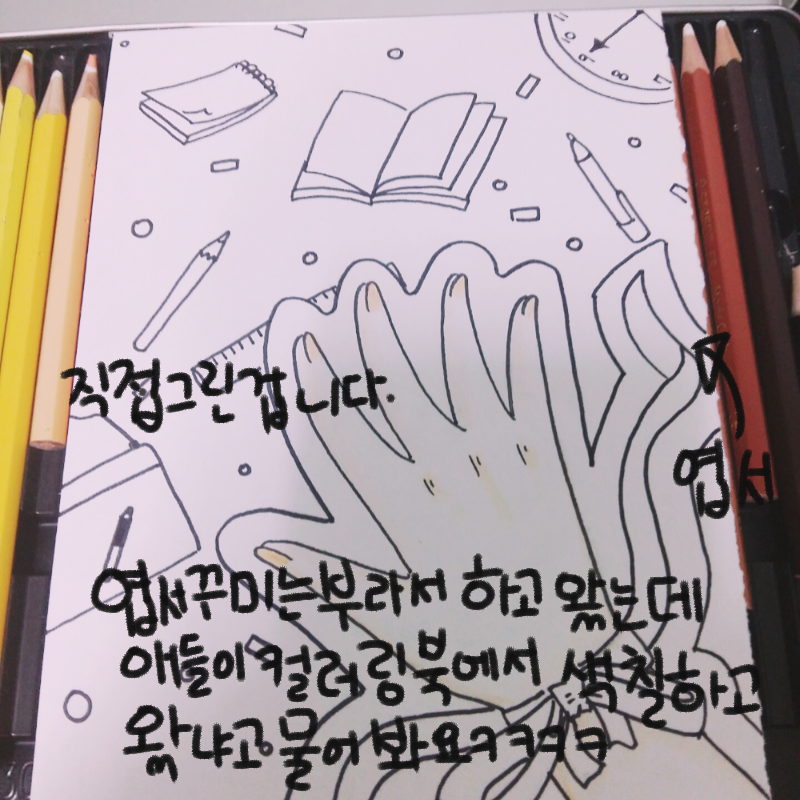 직접그린겁니다.
엽서
엽서꾸미는부라서 하고 왔는데
애들이 컬러링북에서 색칠하고
왔냐고물어봐요ㅋㅋㅋㅋ